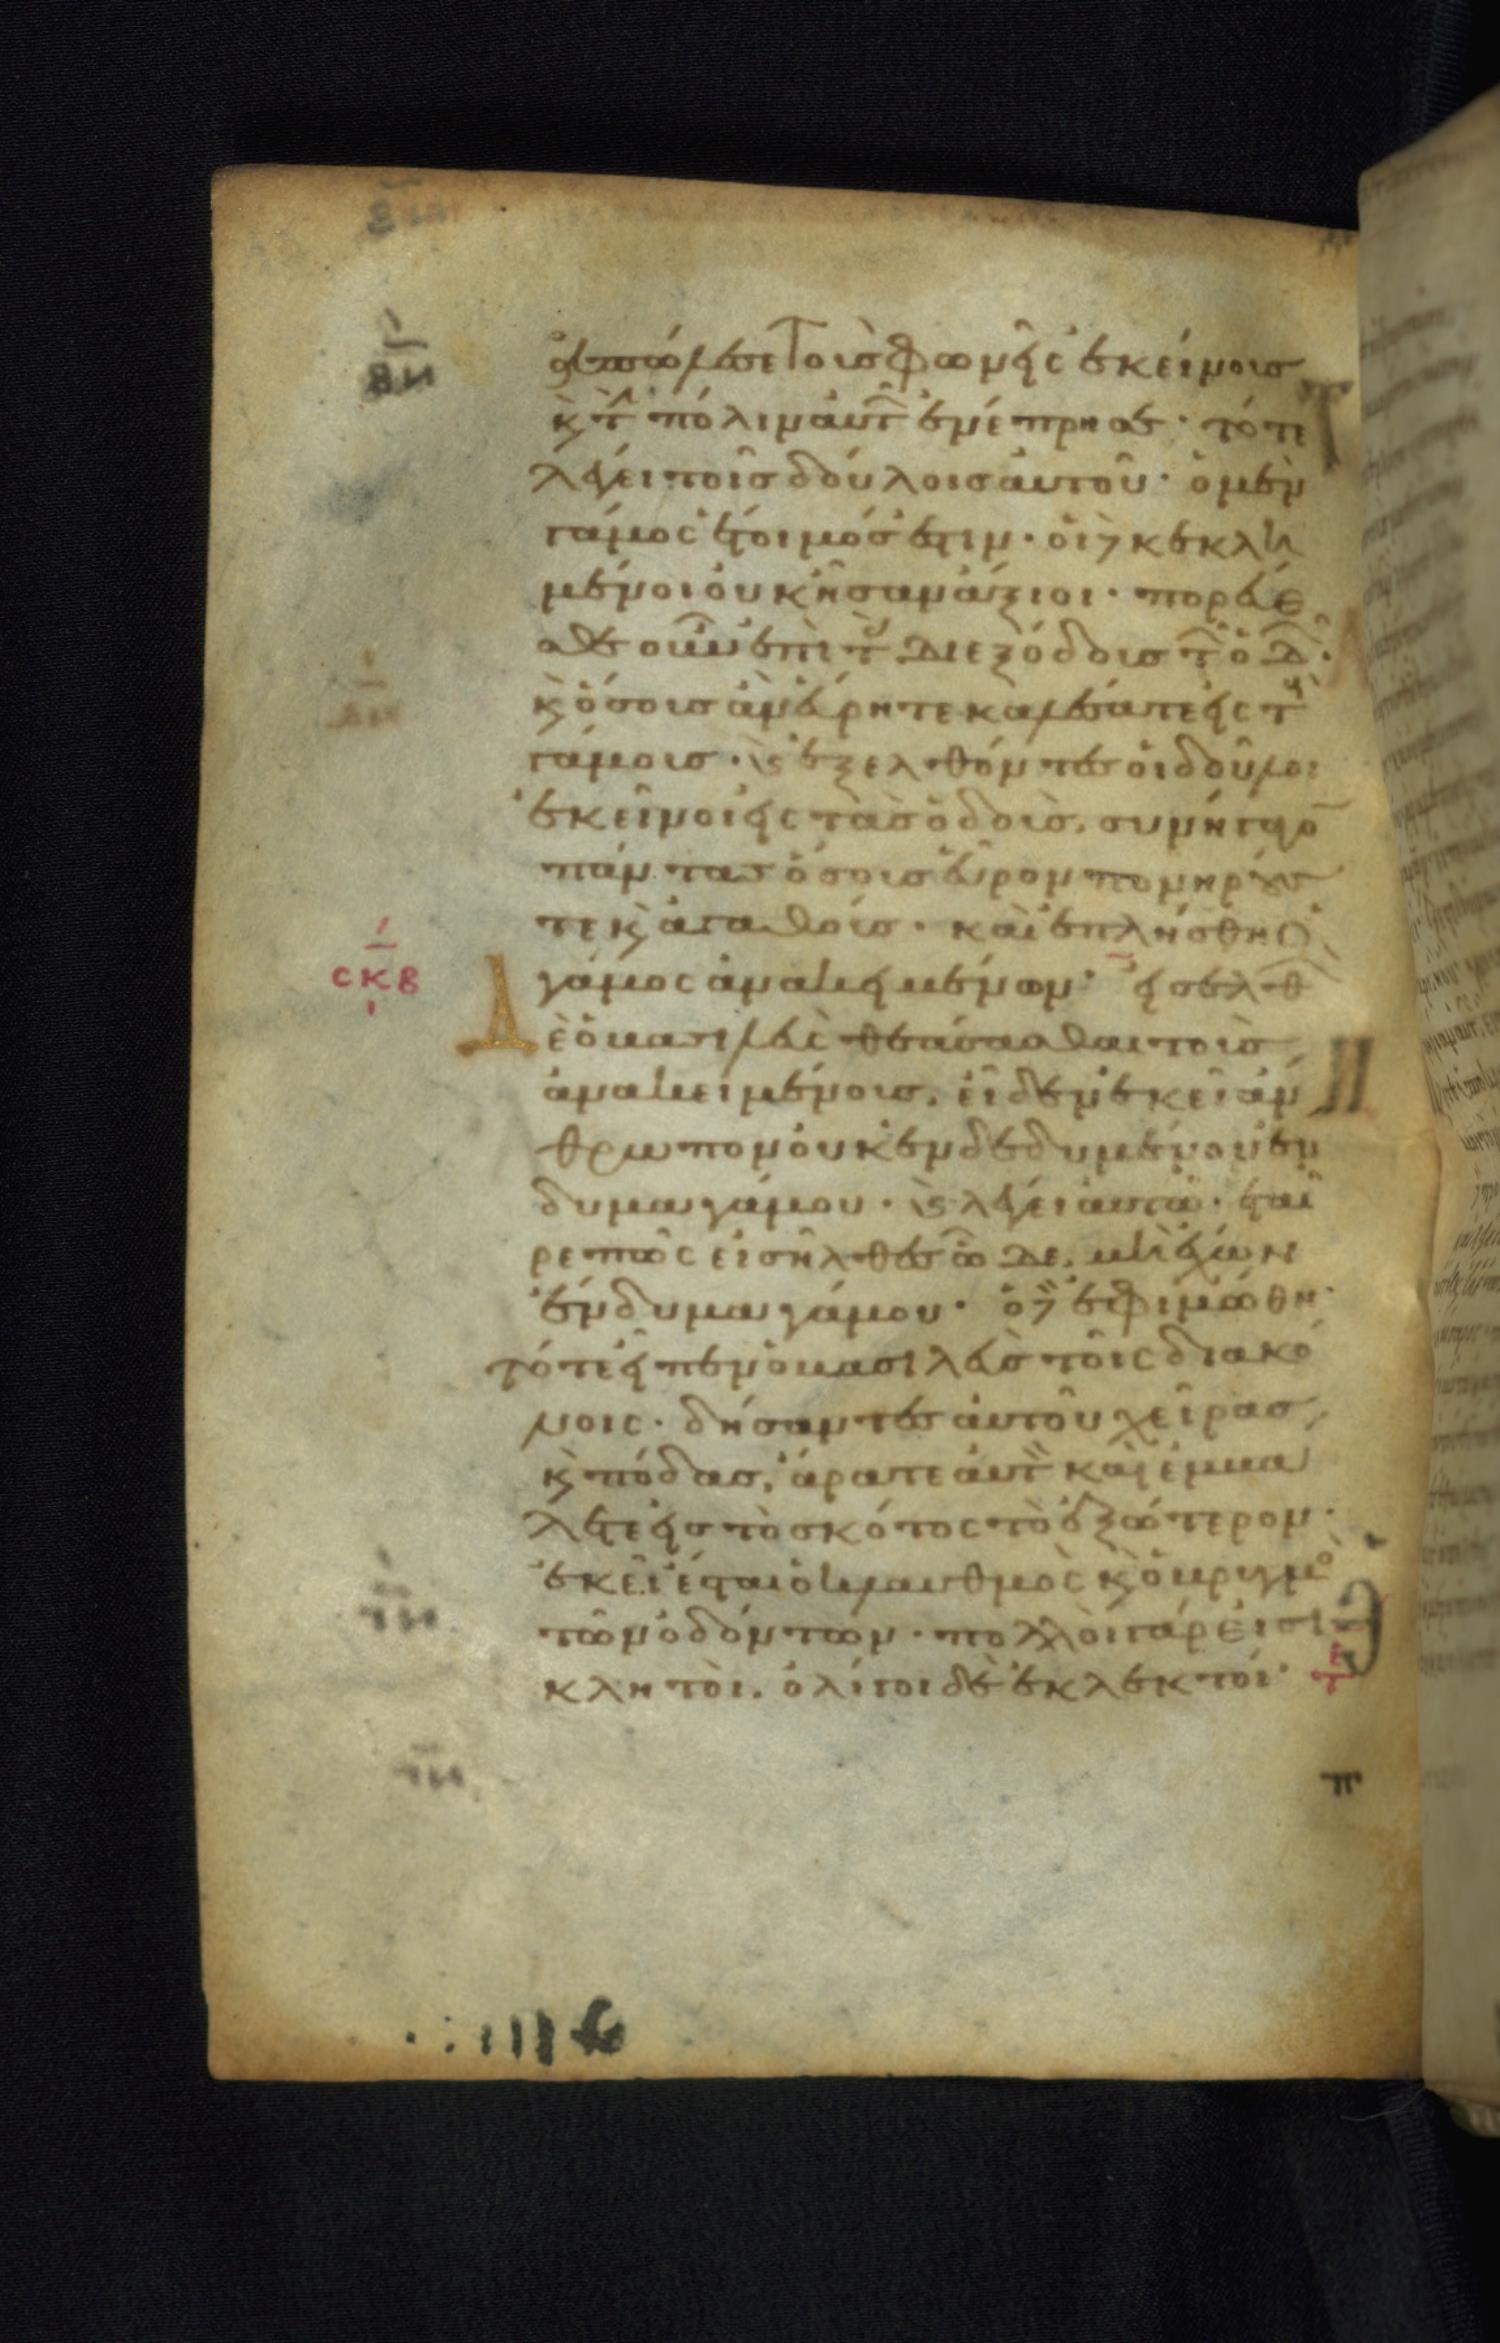 ἀπώλεσε τοὺς φωνεῖς ἐκείνους
κ τ πόλιν αὐτ ἐνέπρησε · τότε
λέγει τοῖς δούλοις αὐτοῦ · ὁ μὲν
γάμος ἕτοιμός ἐστιν · οἱ κεκλη
μένοι οὐκ ἦσαν ἄξιοι · πορεύε
σθε οὖν ἐπὶ τ διεξόδους τ ὁδ ·
κ ὅσους ἂν εὕρητε καλέσατε εἰς τ
γάμους · κ ἐξελθόντες οἱ δοῦλοι
ἐκεῖνοι εἰς τὰς ὁδοὺς, συνήγαγο
πάντας ὅσους εὗρον πονηρούς
τε κ ἀγαθούς · καὶ ἐπλήσθη ὁ
γάμος ἀνακειμένων · εἰσελθ
Δ
ὲ ὁ βασιλεὺς θεάσασθαι τοὺς
σκβ
ἀνακειμένους, εἶδεν ἐκεῖ ἄν
θρωπον οὐκ ἐνδεδυμένον ἔν
δυμα γάμου · κ λέγει αὐτῶ · ἑταῖ
ρε πῶς εἰσῆλθες ὧδε, μὴ ἔχων
ἔνδυμα γάμου · ὁ ἐφιμώθη ·
τότε εἶπεν ὁ βασιλεὺς τοῖς διακό
νοις · δήσαντες αὐτοῦ χεῖρας
κ πόδας, ἄρατε αὐτ καὶ ἐμβά
λετε εἰς τὸ σκότος τὸ ἐξώτερον ·
ἐκεῖ ἔσται ὁ κλαυθμὸς κ ὁ βρυγμὸ
τῶν ὀδόντων · πολλοὶ γάρ εἰσι
κλητοὶ. ὀλίγοι δὲ ἐκλεκτοί ·